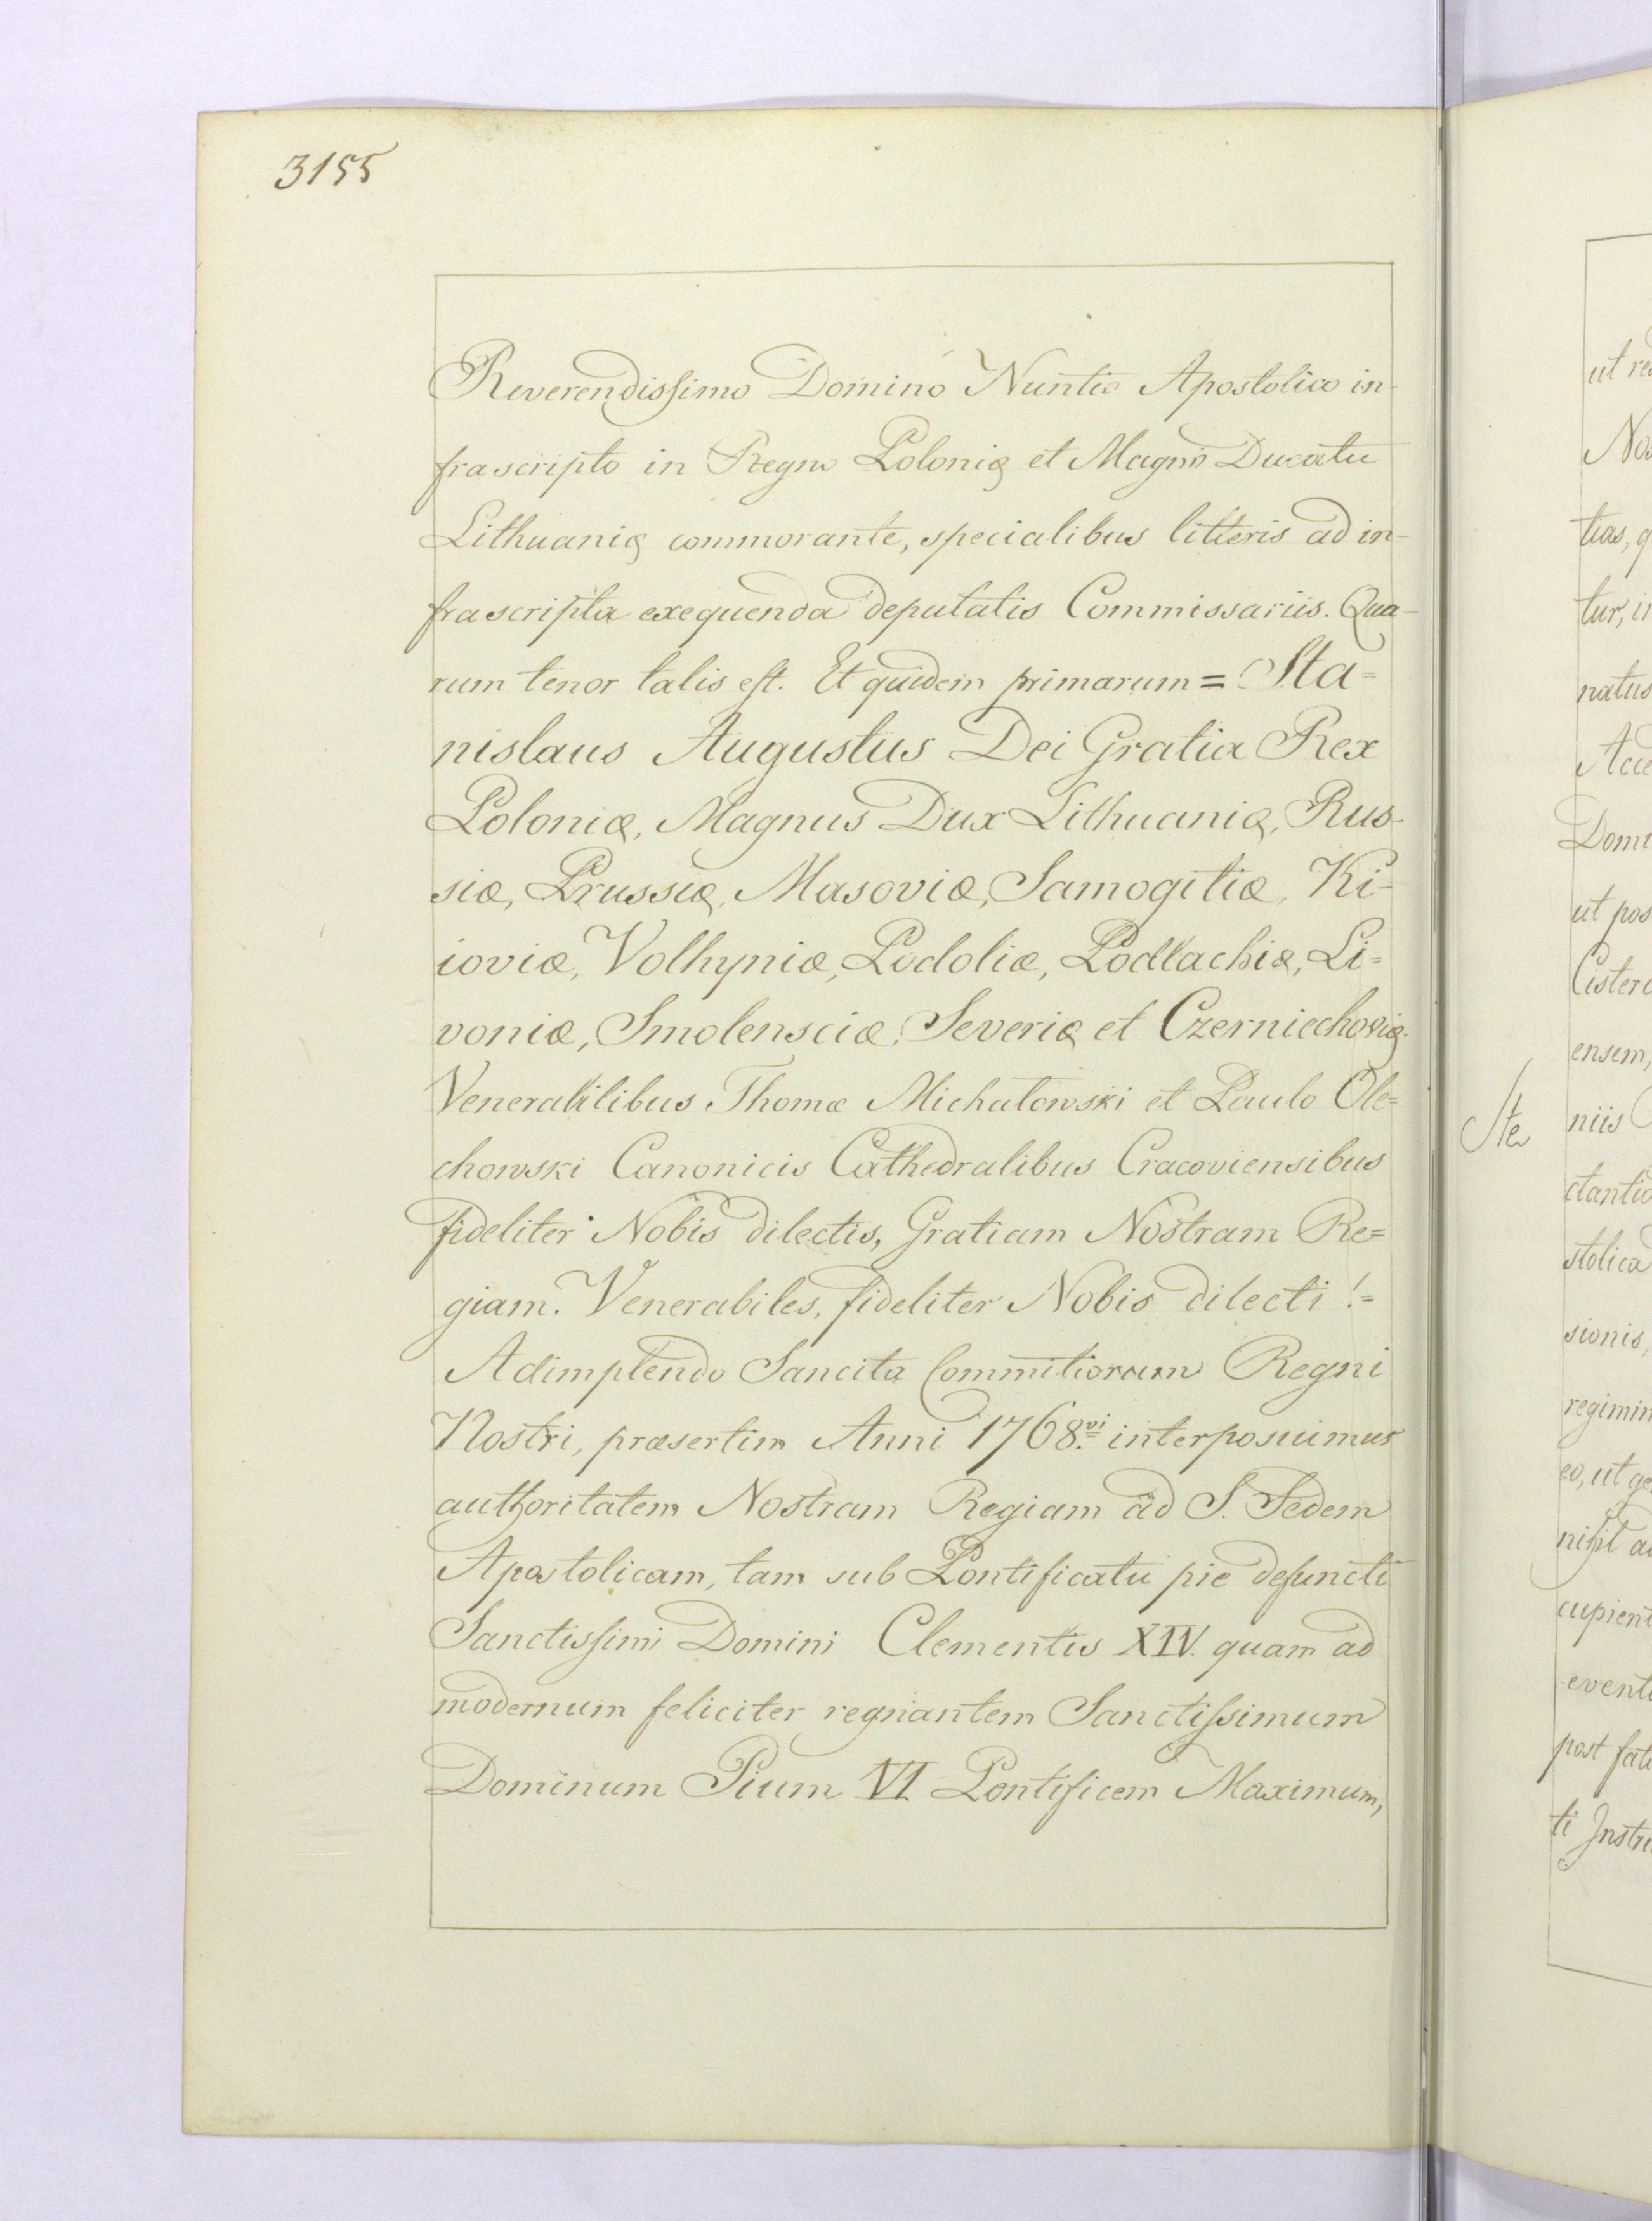 3155
Reverendissimo Domino Nuntio Apostolico in-
frascripto in Regno Poloniæ et Magno Ducatu
Lithuaniæ commorante, specialibus litteris ad in-
frascripta exequenda deputatis Commissariis. Qua-
rum tenor talis est. Et quidem primarum = Sta=
nislaus Augustus Dei Gratia Rex
Poloniæ, Magnus Dux Lithuaniæ, Rus-
siæ, Prussiæ, Masoviæ, Samogitiæ, Ki=
ioviæ, Volhyniæ, Podoliæ, Podlachiæ, Li=
voniæ, Smolensciæ, Severiæ et Czerniechoviæ.
Venerabilibus Thomæ Michałowski et Paulo Ole=
chowski Canonicis Cathedralibus Cracoviensibus
fideliter Nobis dilectis, Gratiam Nostram Re=
giam. Venerabiles, fideliter Nobis dilecti !=
Adimplendo Sancita Commitiorum Regni
Nostri, præsertim Anni 1768.vi interposuimus
authoritatem Nostram Regiam ad S. Sedem
Apostolicam, tam sub Pontificatu pie defuncti
Sanctissimi Domini Clementis XIV. quam ad
modernum feliciter regnantem Sanctissimum
Dominum Pium VI Pontificem Maximum,
ut
tur,
natus
ut
ensem,
niis
sionis,
eo, ut
post
ti